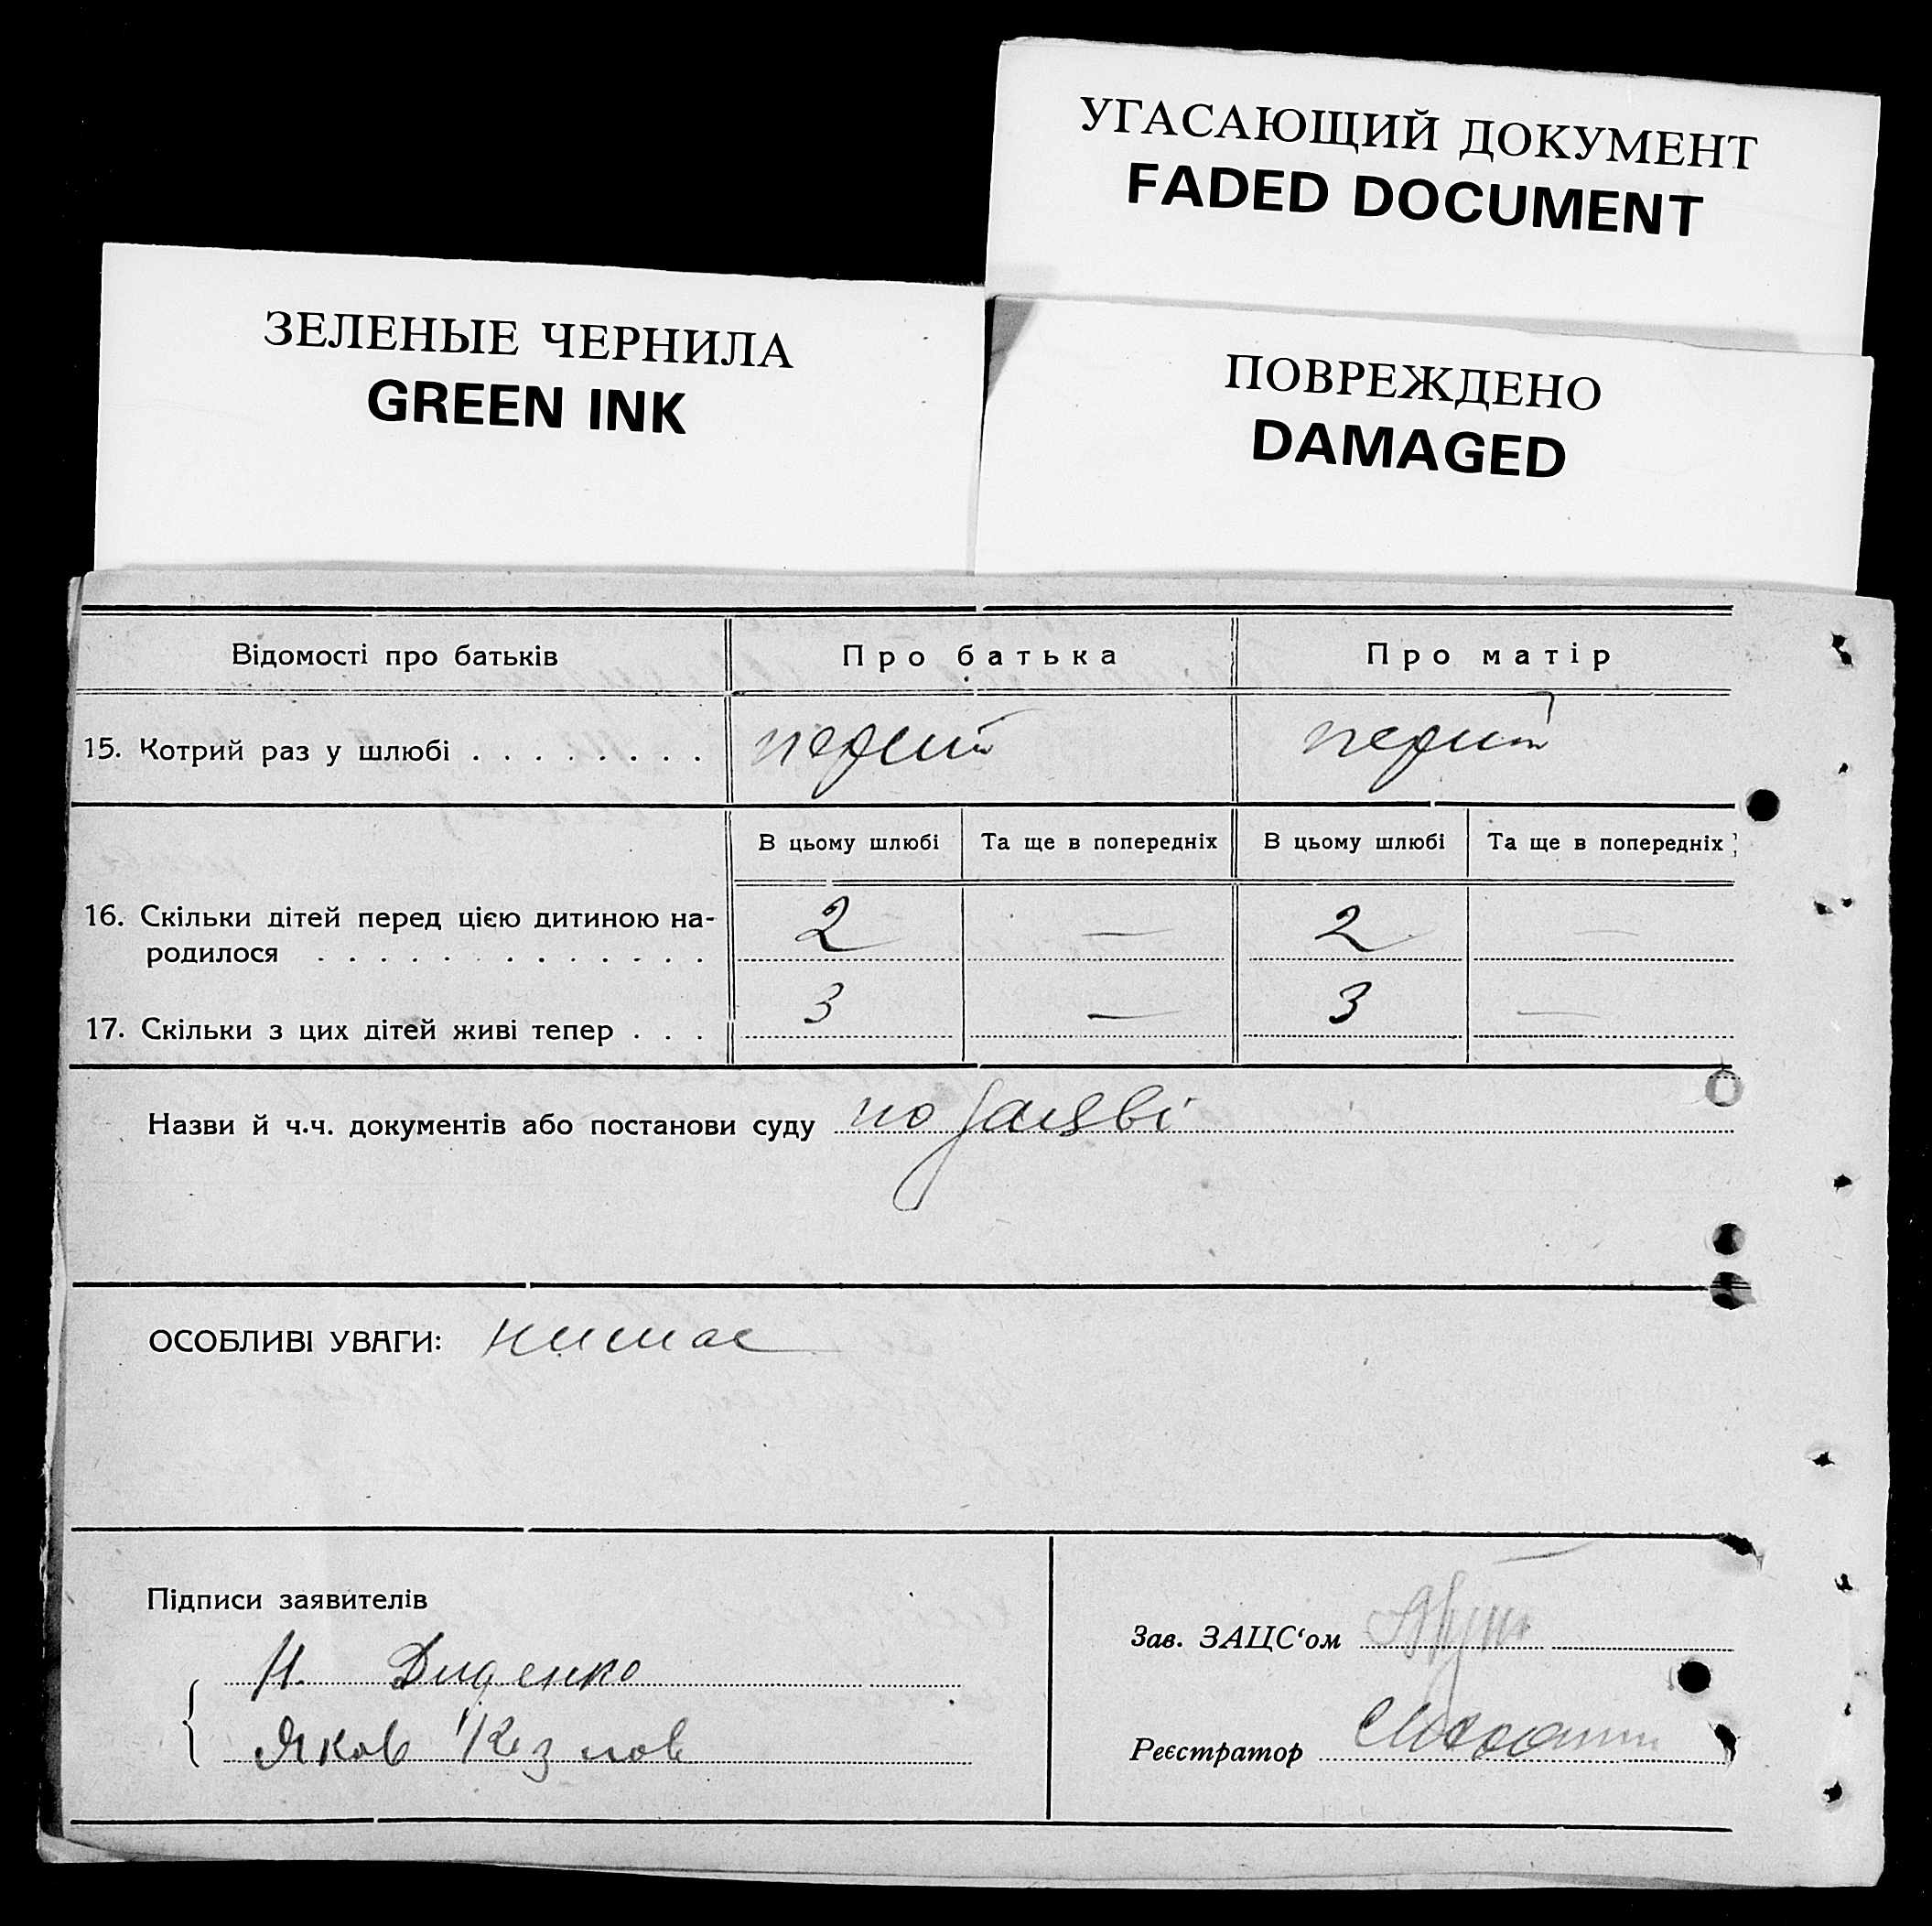 УГАСАЮЩИЙ ДОКУМЕНТ
FADED DOCUMENT
ЗЕЛЕНЫЕ ЧЕРНИЛА
GREEN INK
ПОВРЕЖДЕНО
DAMAGED
Відомості про батьків Про батька Про матір
15. Котрий раз у шлюбі . . . . . . . .
В цьому шлюбі Та ще в попередніх В цьому шлюбі Та ще в попередніх
16. Скільки дітей перед цією дитиною на- 2 — 2 —
родилося . . . . . . . . . . . . .
17. Скільки з цих дітей живі тепер . . . 3 — 3 —
Назви й ч.ч. документів або постанови суду по заяві
ОСОБЛИВІ УВАГИ: немає
Підписи заявителів
Н. Диденко
Яков
Зав. ЗАЦС‘ом
Реєстратор